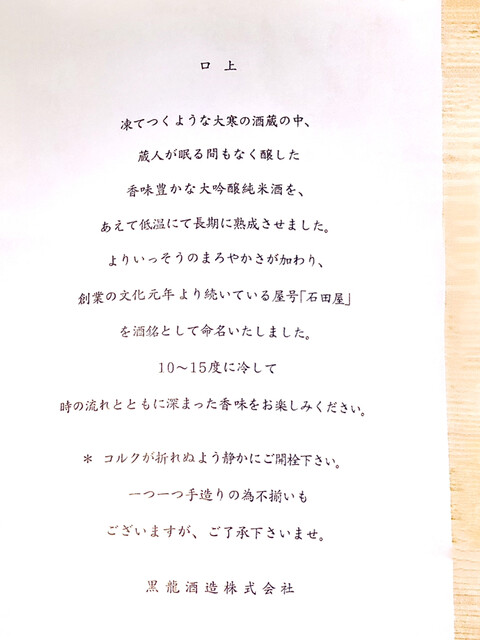 口上
凍てつくような大寒の酒蔵の中、
蔵人が眠る間もなく醸した
香味豊かな大吟醸純米酒を、
あえて低温にて長期に熟成させました。
よりいっそうのまろやかさが加わり、
創業の文化元年より続いている屋号「石田屋」
を酒銘として命名いたしました。
10〜15度に冷して
時の流れとともに深まった香味をお楽しみください。
＊ コルクが折れぬよう静かにご開栓下さい。
一つ一つ手造りの為不揃いも
ございますが、ご了承下さいませ。
黒龍酒造株式会社